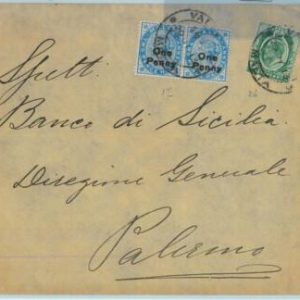 One Penny One Penny
Spett.
Banco di Sicilia
Direzione Generale
Palermo